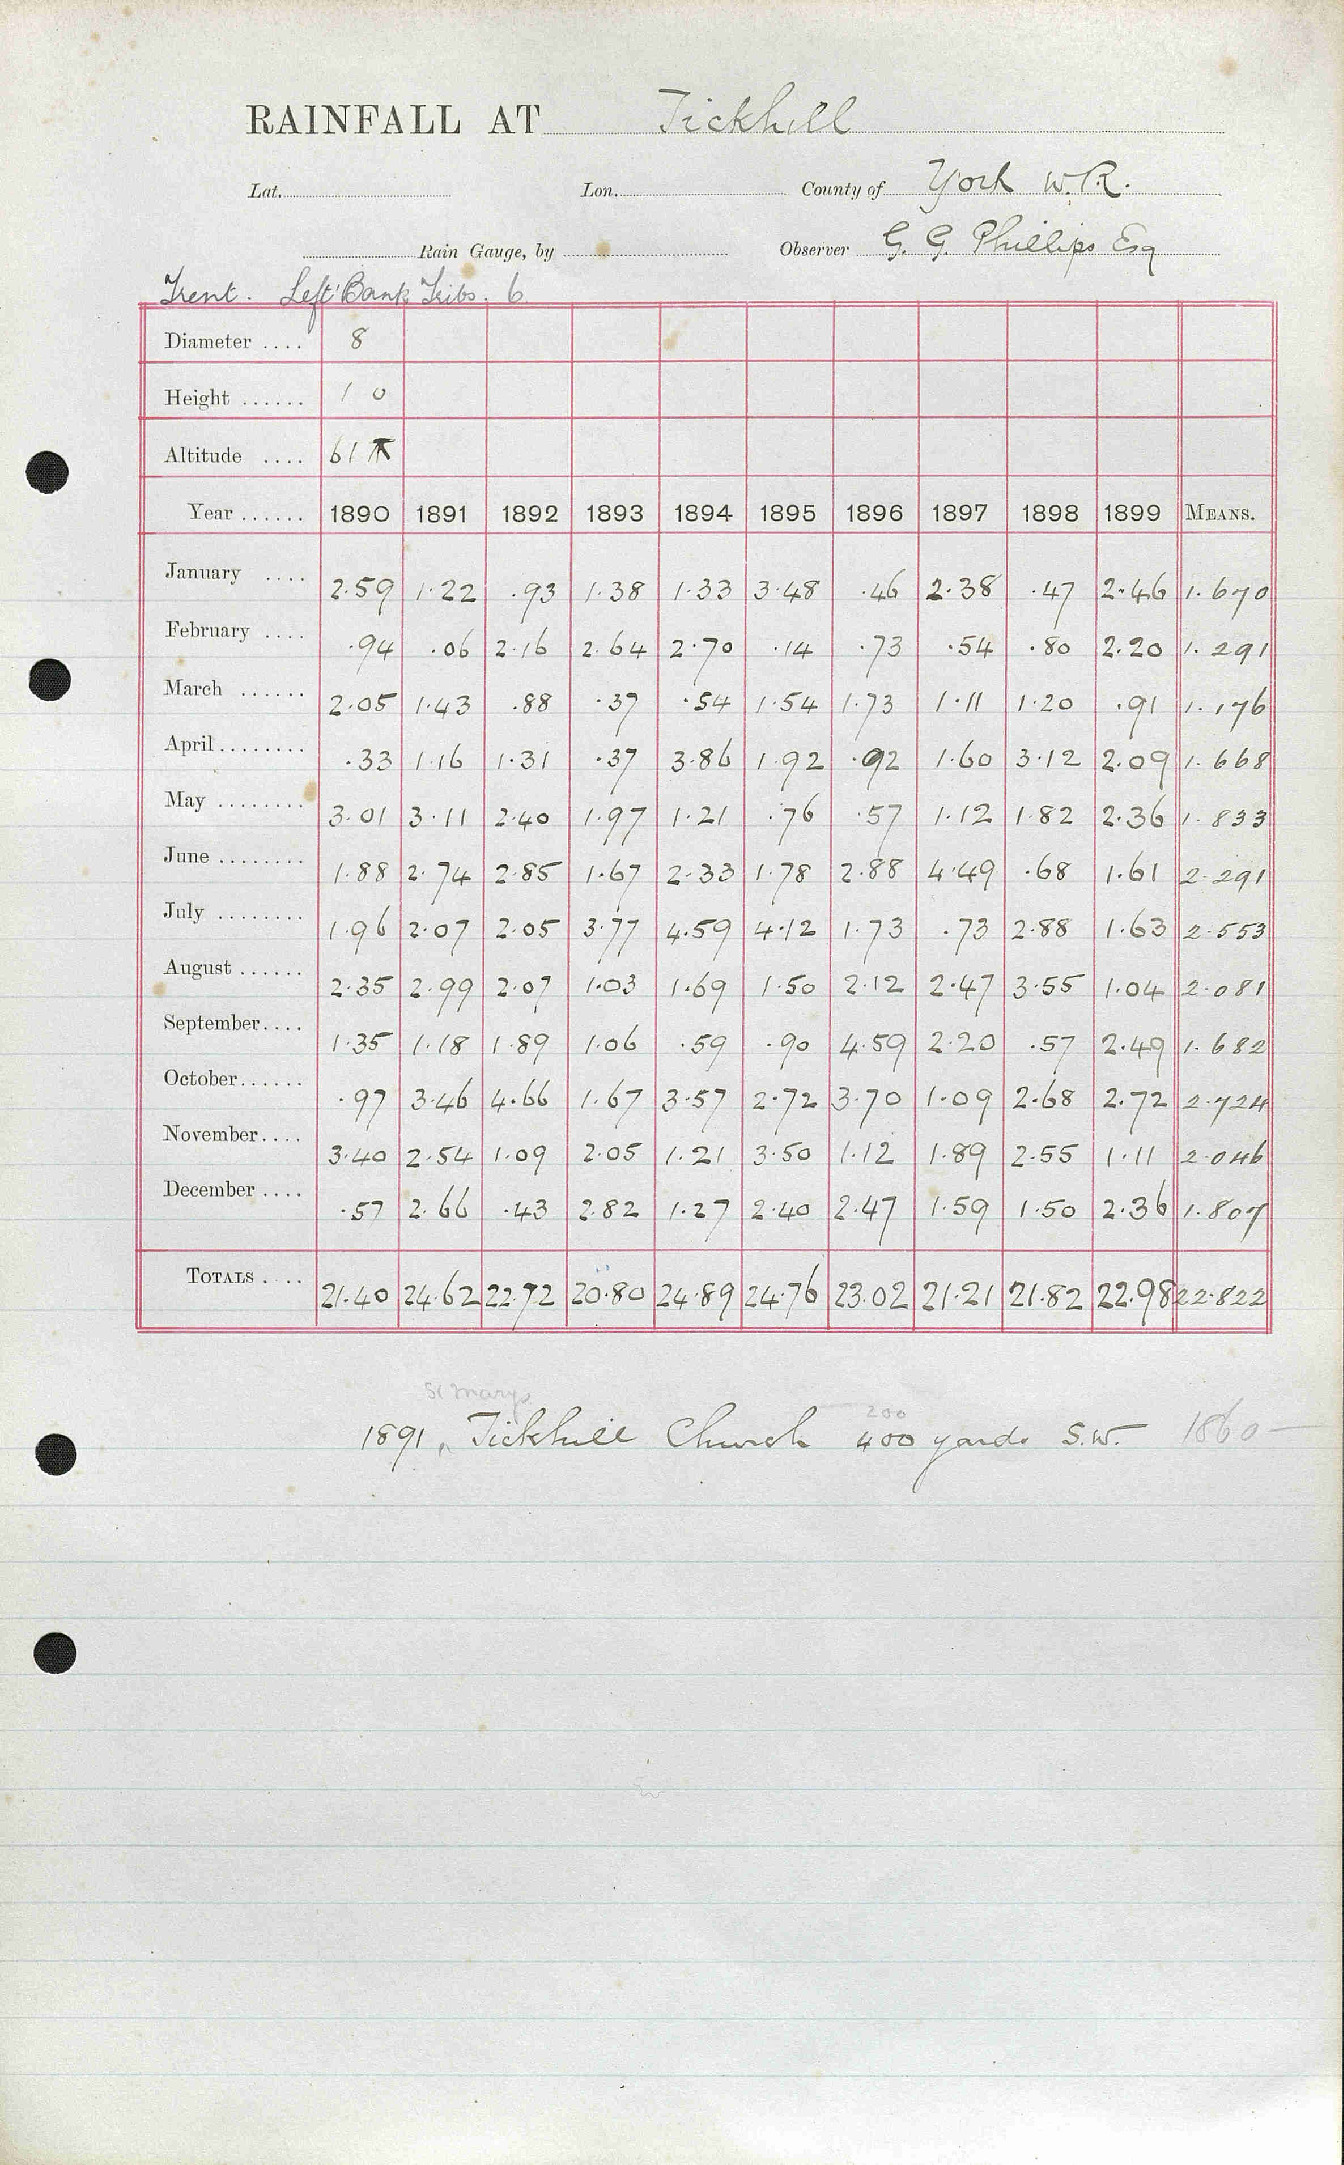 RAINFALL AT Tickhill
Lat. Lon. County of York W.R.
Rain Gauge, by Observer G. G. Phillips Esq
Trent. Left Bank Tribs. 6
Diameter .... 8
Height ...... 1 0
Altitude .... 61
Year ...... 1890 1891 1892 1893 1894 1895 1896 1897 1898 1899 MEANS.
January .... 2.59 1.22 .93 1.38 1.33 3.48 .46 2.38 .47 2.46 1.670
February .... .94 .06 2.16 2.64 2.70 .14 .73 .54 .80 2.20 1.291
March ...... 2.05 1.43 .88 .37 .54 1.54 1.73 1.11 1.20 .91 1.176
April ........ .33 1.16 1.31 .37 3.86 1.92 .92 1.60 3.12 2.09 1.668
May ........ 3.01 3.11 2.40 1.97 1.21 .76 .57 1.12 1.82 2.36 1.833
June ........ 1.88 2.74 2.85 1.67 2.33 1.78 2.88 4.49 .68 1.61 2.291
July ........ 1.96 2.07 2.05 3.77 4.59 4.12 1.73 .73 2.88 1.63 2.553
August ...... 2.35 2.99 2.07 1.03 1.69 1.50 2.12 2.47 3.55 1.04 2.081
September .... 1.35 1.18 1.89 1.06 .59 .90 4.59 2.20 .57 2.49 1.682
October ...... .97 3.46 4.66 1.67 3.57 2.72 3.70 1.09 2.68 2.72 2.724
November .... 3.40 2.54 1.09 2.05 1.21 3.50 1.12 1.89 2.55 1.11 2.046
December .... .57 2.66 .43 2.82 1.27 2.40 2.47 1.59 1.50 2.36 1.807
TOTALS .... 21.40 24.62 22.72 20.80 24.89 24.76 23.02 21.21 21.82 22.98 22.822
St Marys 200
1891, Tickhill Church 400 yards S.W. 1860-